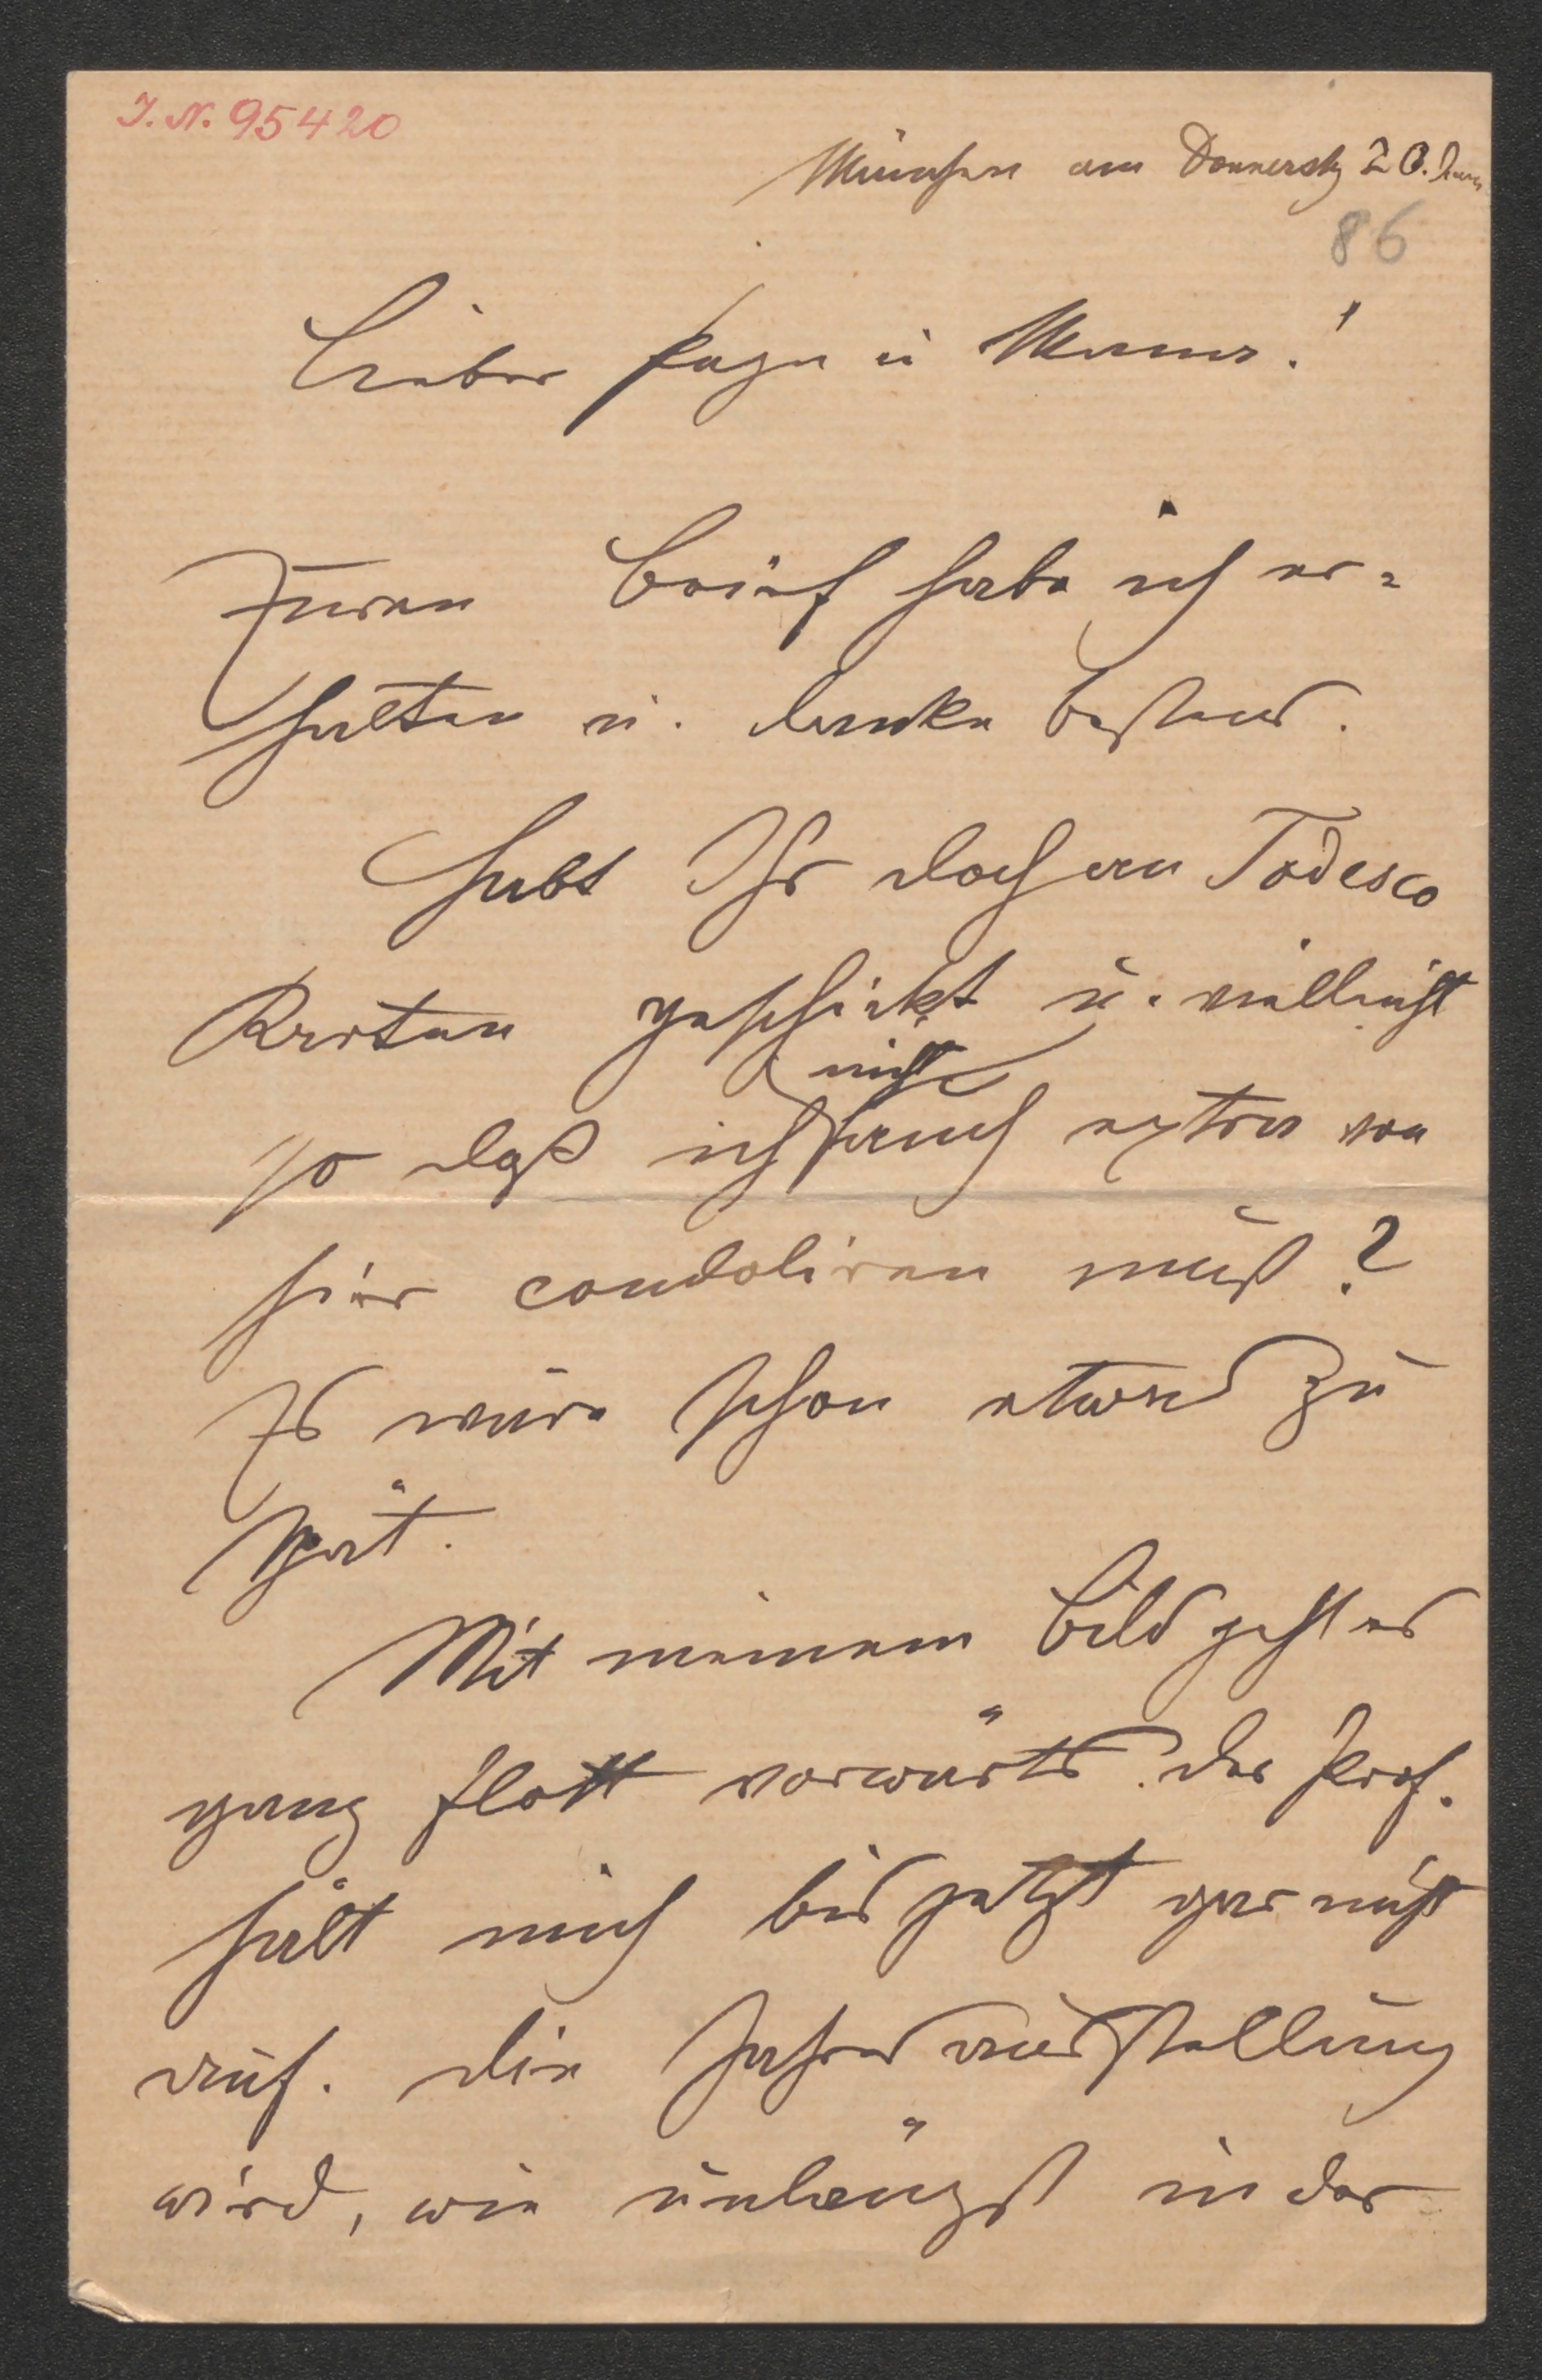 I. N. 95420
München am Donnerstg 20.
86
Lieber Papa u Mama!
Euren Brief habe ich er=
halten u. danke bestens.
Habt Ihr doch an Todesco
Karten geschickt u. vielleicht
nicht
so daß ich auch extra von
hier condoliren muß?
Es wäre schon etwas zu
spät.
Mit meinem Bild geht es
ganz flott vorwärts. der Prof.
hält mich bis jetzt gar nicht
auf. die Jahresausstellung
wird, wie unlängst in der